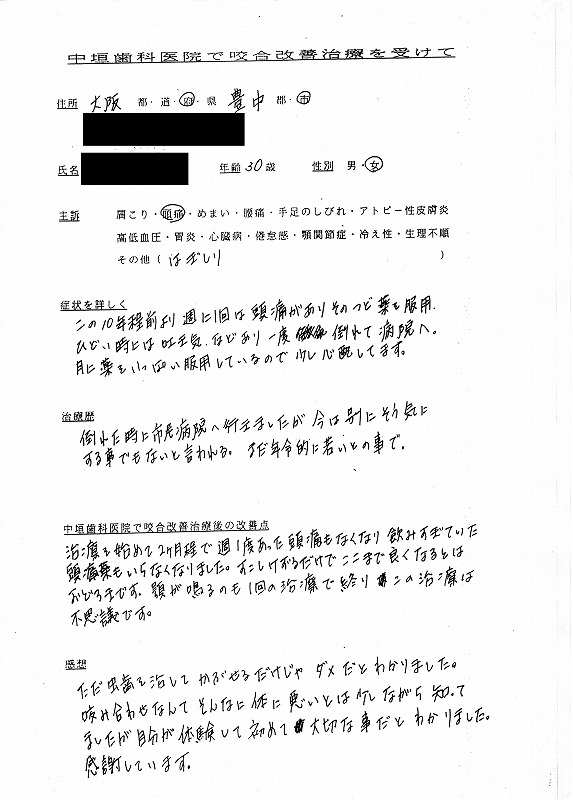 中垣歯科医院で咬合改善治療を受けて
住所 大阪 都・道・府・県 豊中 郡・市
氏名 年齢 30歳 性別 男・女
主訴 肩こり・頭痛・めまい・腰痛・手足のしびれ・アトピー性皮膚炎
高低血圧・胃炎・心臓病・倦怠感・顎関節症・冷え性・生理不順
その他（はぎしり）
症状を詳しく
この10年程前より週に1回は頭痛がありそのつど薬を服用.
ひどい時には吐き気.などあり一度 倒れて病院へ。
月に薬をいっぱい服用しているので少し心配してます。
治療歴
倒れた時に市民病院へ行きましたが今は別にそう気に
する事でもないと言われる。まだ年令的に若いとの事で.
中垣歯科医院で咬合改善治療後の改善点
治療を始めて2ヶ月程で週1度あった頭痛もなくなり飲みすぎていた
頭痛薬もいらなくなりました。すこしけずるだけでここまで良くなるとは
おどろきです。顎が鳴るのも1回の治療で終り この治療は
不思議です。
感想
ただ虫歯を治してかぶせるだけじゃダメだとわかりました。
咬み合わせなんてそんなに体に悪いとは少しながら知って
ましたが自分が体験して初めて大切な事だとわかりました。
感謝しています。